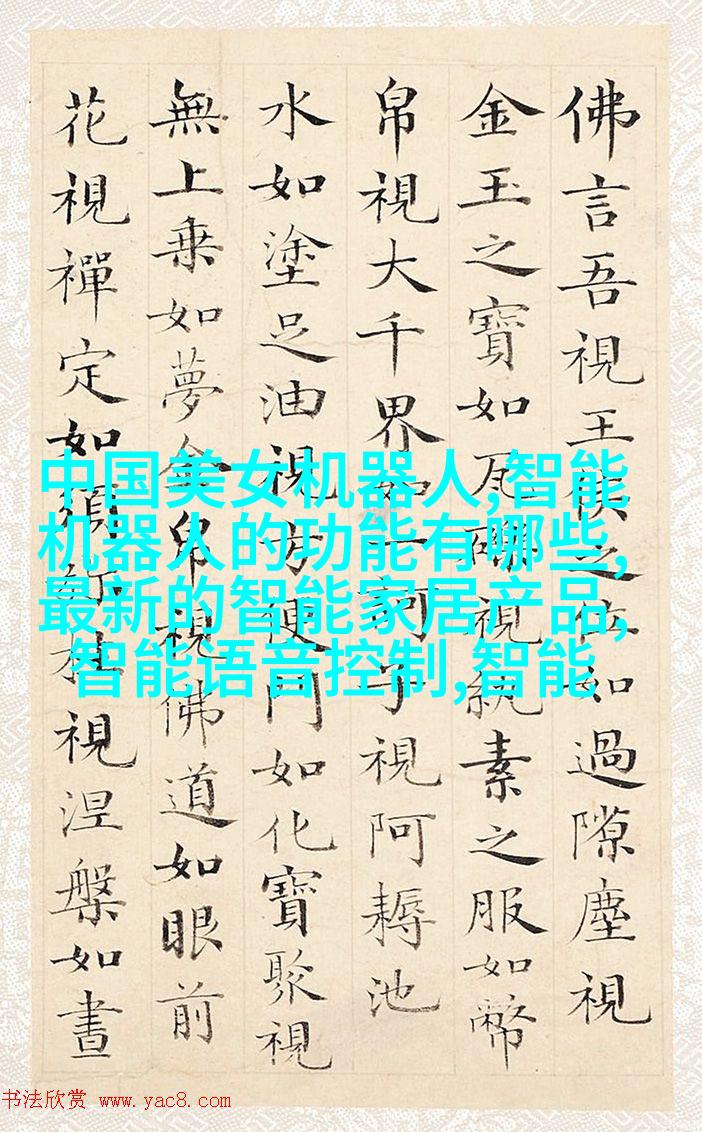 佛言吾視王侯之位如過隙塵視
金玉之寶如瓦礫視紈素之服如幣
帛視大千界如一訶子視阿耨池
水如塗足油視方便門如化寶聚視
無上乘如夢金帛視佛道如眼前
花視禪定如須彌柱視涅槃如晝
中国美女机器人,智能
机器人的功能有哪些,
最新的智能家居产品,
智能语音控制,智能
书法欣赏 www.yac8.com